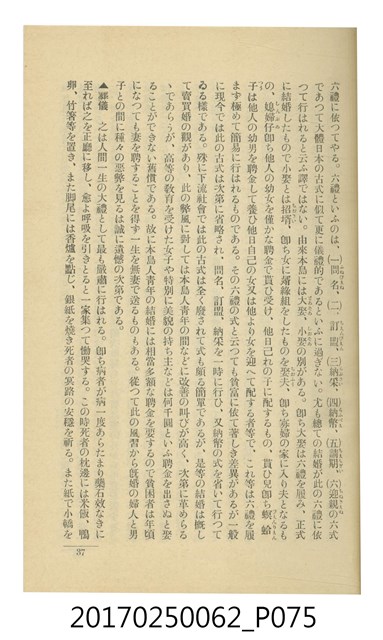 六禮に依つてやる。六禮といふのは、(一)問名、(二)訂盟、(三)納采、(四)納幣、(五)請期、(六)迎親の六式
であつて大體日本の古式に倣て更に儀禮的であるといふに過ぎない。尤も總ての結婚が此の六禮に依
つて行はれると云ふ譯ではない。由來本島には大娶、小娶の別がある。卽ち大娶は六禮を履み、正式
に結婚したもので小娶とは招壻、卽ち女に婿緣組をしたものを娶夫、卽ち寡婦の家に入り夫となるも
の、媳婦仔卽ち他人の幼女を僅かな聘金で貰ひ受け、他日己れの子に配するもの、貰ひ兒卽ち螟蛤
子は他人の幼男を聘金して養ひ他日自己の女又は他より女を迎へて配する者等で、これ等は六禮を履
まず極めて簡易に行はれるものである。その六禮の式と云つても貧富に依て著しき差異があるが一般
に現今では此の古式は次第に省略され、問名、訂盟、納采を一時に行ひ、又納幣の式を省いて行つて
ゐる樣である。殊に下流社會では此の古式は全く廢されて式も頗る簡單であるが、是等の結婚は槪し
て賣買婚の觀があり、此の弊風に對しては本島人靑年の間などに改善の叫びが高く、次第に革めらる
ゝであらうが、高等の敎育を受けた女子や特別に美貌の持ち主などは何千圓といふ聘金を出さぬと娶
ることができない習慣である。故に本島人靑年の結婚には相當多額な聘金を要するので貧困者は年頃
になつても妻を聘することを得ず一生を無妻で送るものもある。從つて此の風習から旣婚の婦人と男
子との間に種々の惡弊を見るは誠に遺憾の次第である。
▲葬儀 之は人間一生の大禮として最も嚴肅に行はれる。卽ち病者が病一度あらたまり藥石效なきに
至れば之を正廳に移し、愈よ呼吸を引きとると一家集つて慟哭する。この時死者の枕邊には米飯、鴨
卵、竹箸等を置き、また脚尾には香爐を點し、銀紙を燒き死者の冥路の安穩を祈る。また紙で小轎を
37
20170250062_P075